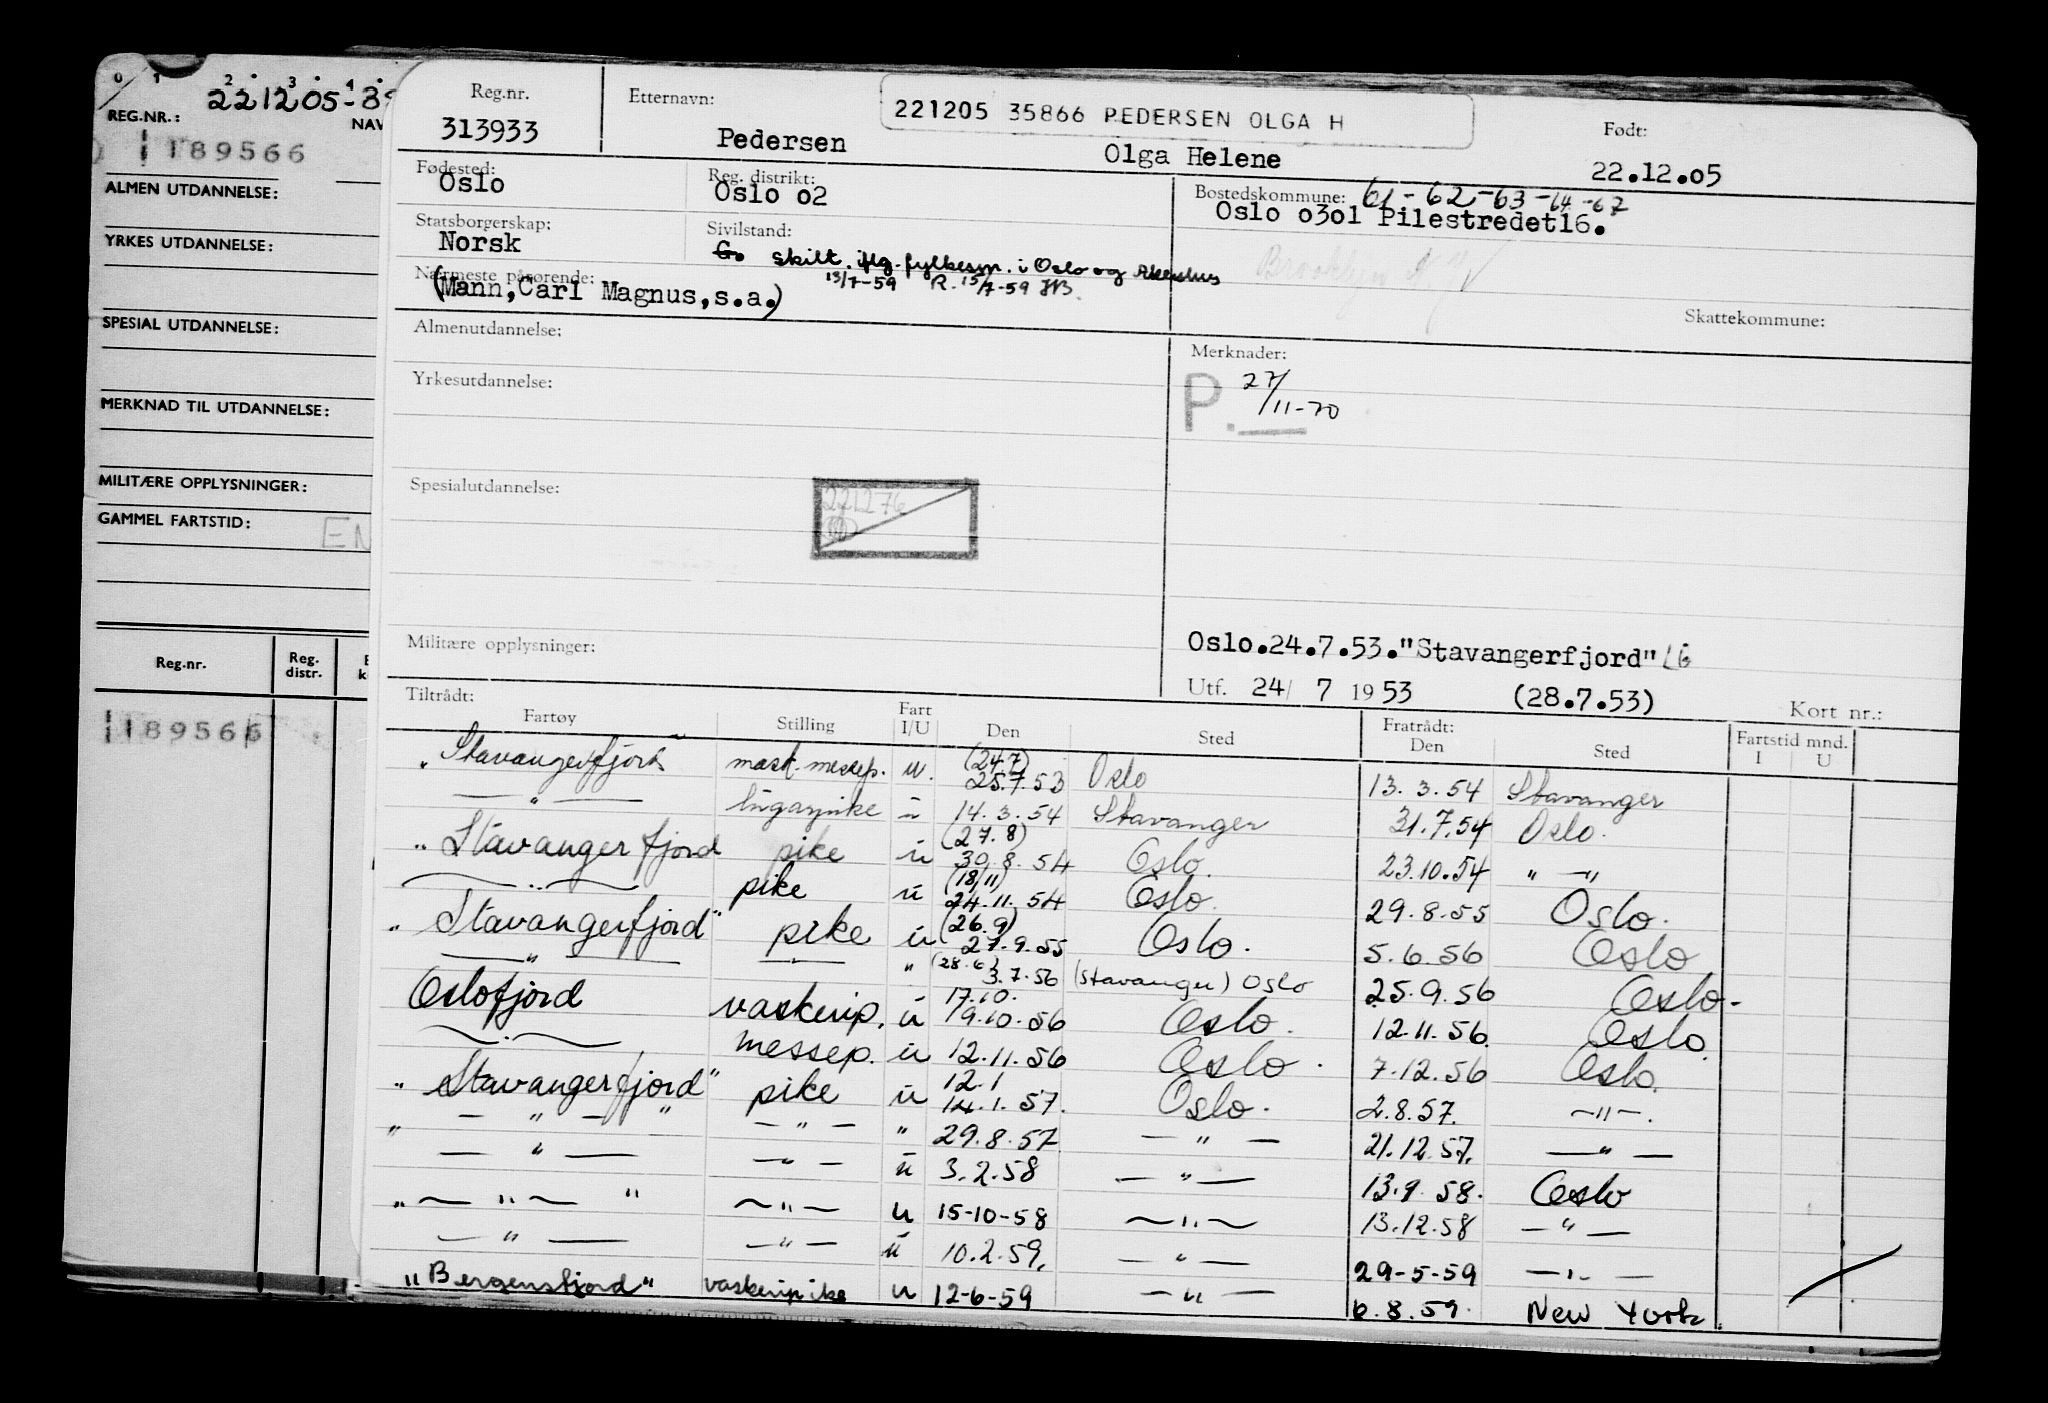 0 1 2 3 4
REG.NR.: 221205-
NAV
189566
ALMEN UTDANNELSE:
YRKES UTDANNELSE:
SPESIAL UTDANNELSE:
MERKNAD TIL UTDANNELSE:
MILITÆRE OPPLYSNINGER:
GAMMEL FARTSTID:
EN
Reg.nr. Reg. distr.
189566
Reg.nr. Etternavn: 221205 35866 PEDERSEN OLGA H Født:
313933 Pedersen Olga Helene 22.12.05
Fødested: Reg. distrikt: Bostedskommune: 61-62-63-64-67
Oslo Oslo o2 Oslo o3o1 Pilestredet16.
Statsborgerskap: Sivilstand:
Norsk G. skilt. iflg. fylkesm. i Oslo og Akershus
Nærmeste pårørende: 13/7-59 R. 15/7-59 HB.
(Mann, Carl Magnus, s.a.)
Brooklyn N.Y.
Skattekommune:
Almenutdannelse:
Merknader:
Yrkesutdannelse:
P. 27/11-70
Spesialutdannelse:
221276
Militære opplysninger:
Oslo.24.7.53."Stavangerfjord"
Utf. 24/ 7 1953 (28.7.53) Kort nr.:
Tiltrådt: Fratrådt: Fartstid mnd.
Fartøy Stilling Fart I/U Den Sted Den Sted I U
"Stavangerfjord" mask.messep. u. (24.7) 25.7.53 Oslo 13.3.54 Stavanger
— " — lugarpike u 14.3.54 Stavanger 31.7.54 Oslo.
"Stavangerfjord pike u (27.8) 30.8.54 Oslo. 23.10.54 " —"
— " — pike u (18/11) 24.11.54 Oslo. 29.8.55 Oslo.
"Stavangerfjord" pike u (26.9) 27.9.55 Oslo. 5.6.56 Oslo
— " — — " — " (28.6) 3.7.56 (Stavanger) Oslo 25.9.56 Oslo-
Oslofjord vaskerip. u 17.10. 19.10.56 Oslo. 12.11.56. Oslo.
— " — messep. u 12.11.56 Oslo. 7.12.56 Oslo.
"Stavangerfjord" pike u 12.1 14.1.57. Oslo. 2.8.57. —"—.
" — " — " — " — " 29.8.57 — " — 21.12.57. — " —
— " — — " — u 3.2.58 — " — 13.9.58. Oslo
" — " — " — " — u 15-10-58 — " — 13.12.58 — " —
— " — — " — u 10.2.59. — " — 29-5-59 — " —
"Bergensfjord" vaskeripike u 12-6-59 — " — 6.8.59. New York.